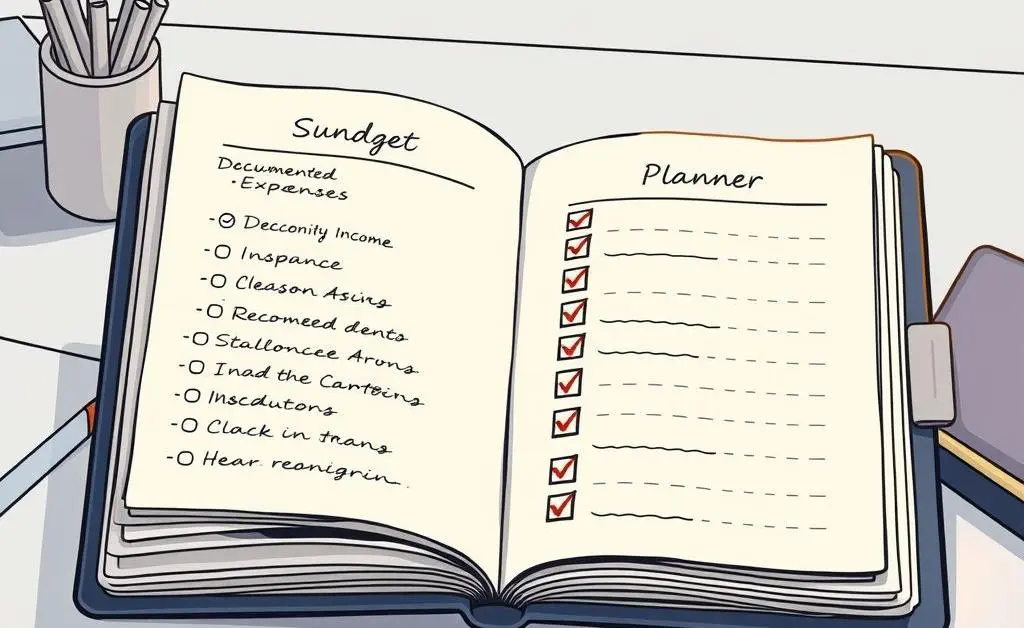 Sundget
Documented
• Expenses
Decconity Income
Inspance
Cleason Asirg
Recomeed dents
Stalloncee Arong
Inad the Cartoirg
Inscdutong
Clack in trang
Hear reonigrin
Planner